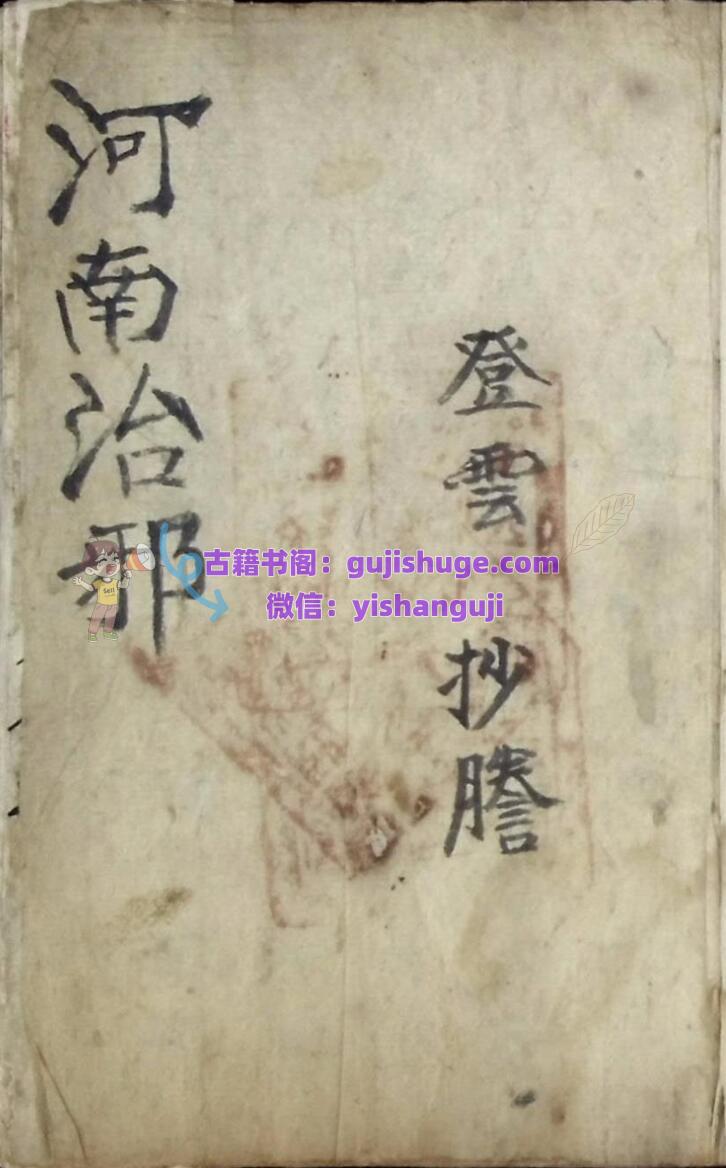 登雲 抄謄
河南治邪
古籍书阁：gujishuge.com
微信：yishanguji
Sell